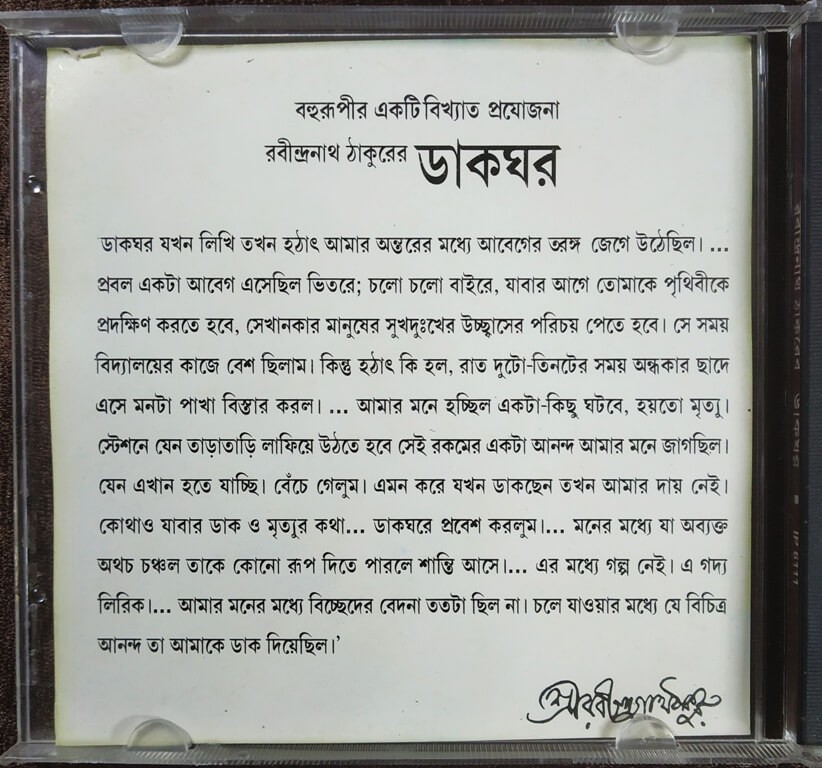 বহুরূপীর একটি বিখ্যাত প্রযোজনা
রবীন্দ্রনাথ ঠাকুরের ডাকঘর
ডাকঘর যখন লিখি তখন হঠাৎ আমার অন্তরের মধ্যে আবেগের তরঙ্গ জেগে উঠেছিল। ...
প্রবল একটা আবেগ এসেছিল ভিতরে; চলো চলো বাইরে, যাবার আগে তোমাকে পৃথিবীকে
প্রদক্ষিণ করতে হবে, সেখানকার মানুষের সুখদুঃখের উচ্ছ্বাসের পরিচয় পেতে হবে। সে সময়
বিদ্যালয়ের কাজে বেশ ছিলাম। কিন্তু হঠাৎ কি হল, রাত দুটো-তিনটের সময় অন্ধকার ছাদে
এসে মনটা পাখা বিস্তার করল। ... আমার মনে হচ্ছিল একটা-কিছু ঘটবে, হয়তো মৃত্যু।
স্টেশনে যেন তাড়াতাড়ি লাফিয়ে উঠতে হবে সেই রকমের একটা আনন্দ আমার মনে জাগছিল।
যেন এখান হতে যাচ্ছি। বেঁচে গেলুম। এমন করে যখন ডাকছেন তখন আমার দায় নেই।
কোথাও যাবার ডাক ও মৃত্যুর কথা... ডাকঘরে প্রবেশ করলুম।... মনের মধ্যে যা অব্যক্ত
অথচ চঞ্চল তাকে কোনো রূপ দিতে পারলে শান্তি আসে।... এর মধ্যে গল্প নেই। এ গদ্য
লিরিক।... আমার মনের মধ্যে বিচ্ছেদের বেদনা ততটা ছিল না। চলে যাওয়ার মধ্যে যে বিচিত্র
আনন্দ তা আমাকে ডাক দিয়েছিল।’
শ্রীরবীন্দ্রনাথ ঠাকুর
রবীন্দ্রনাথ ঠাকুরের ডাকঘর